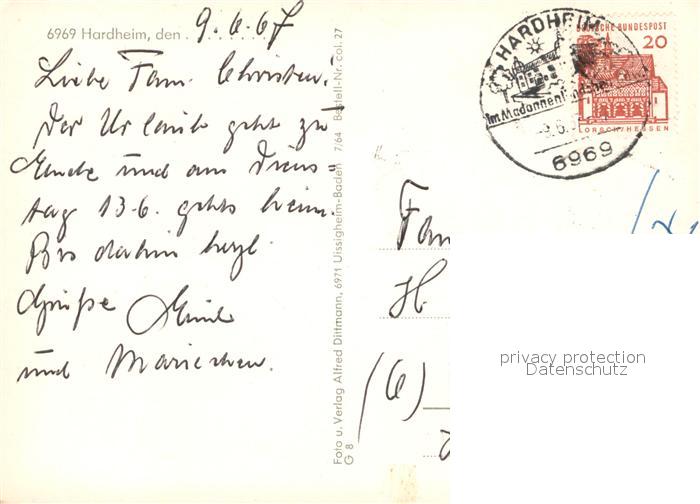 6969 Hardheim, den . 9.6.67
Liebe Fam. Christen!
Der Urlaub geht zu
Ende und am Diens=
tag 13.6. gehts heim.
Bis dahin herzl.
Grüße
und Mariechen.
Foto u. Verlag Alfred Dittmann, 6971 Uissigheim-Baden 7/64 Bestell-Nr. col. 27
G 8
HARDHEIM
Im Madonnenländchen
6969
DEUTSCHE BUNDESPOST
20
LORSCH/HESSEN
Fam
H.
(6)
privacy protection
Datenschutz